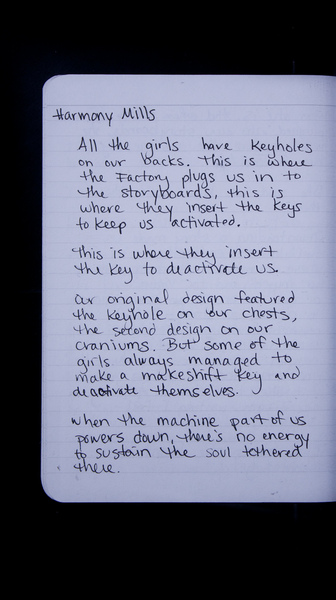 Harmony Mills
All the girls have keyholes
on our backs. This is where
the Factory plugs us in to
the storyboards, this is
where they insert the keys
to keep us activated.
This is where they insert
the key to deactivate us.
our original design featured
the keyhole on our chests,
the second design on our
craniums. But some of the
girls always managed to
make a makeshift key and
deactivate themselves.
when the machine part of us
powers down, there's no energy
to sustain the soul tethered
there.